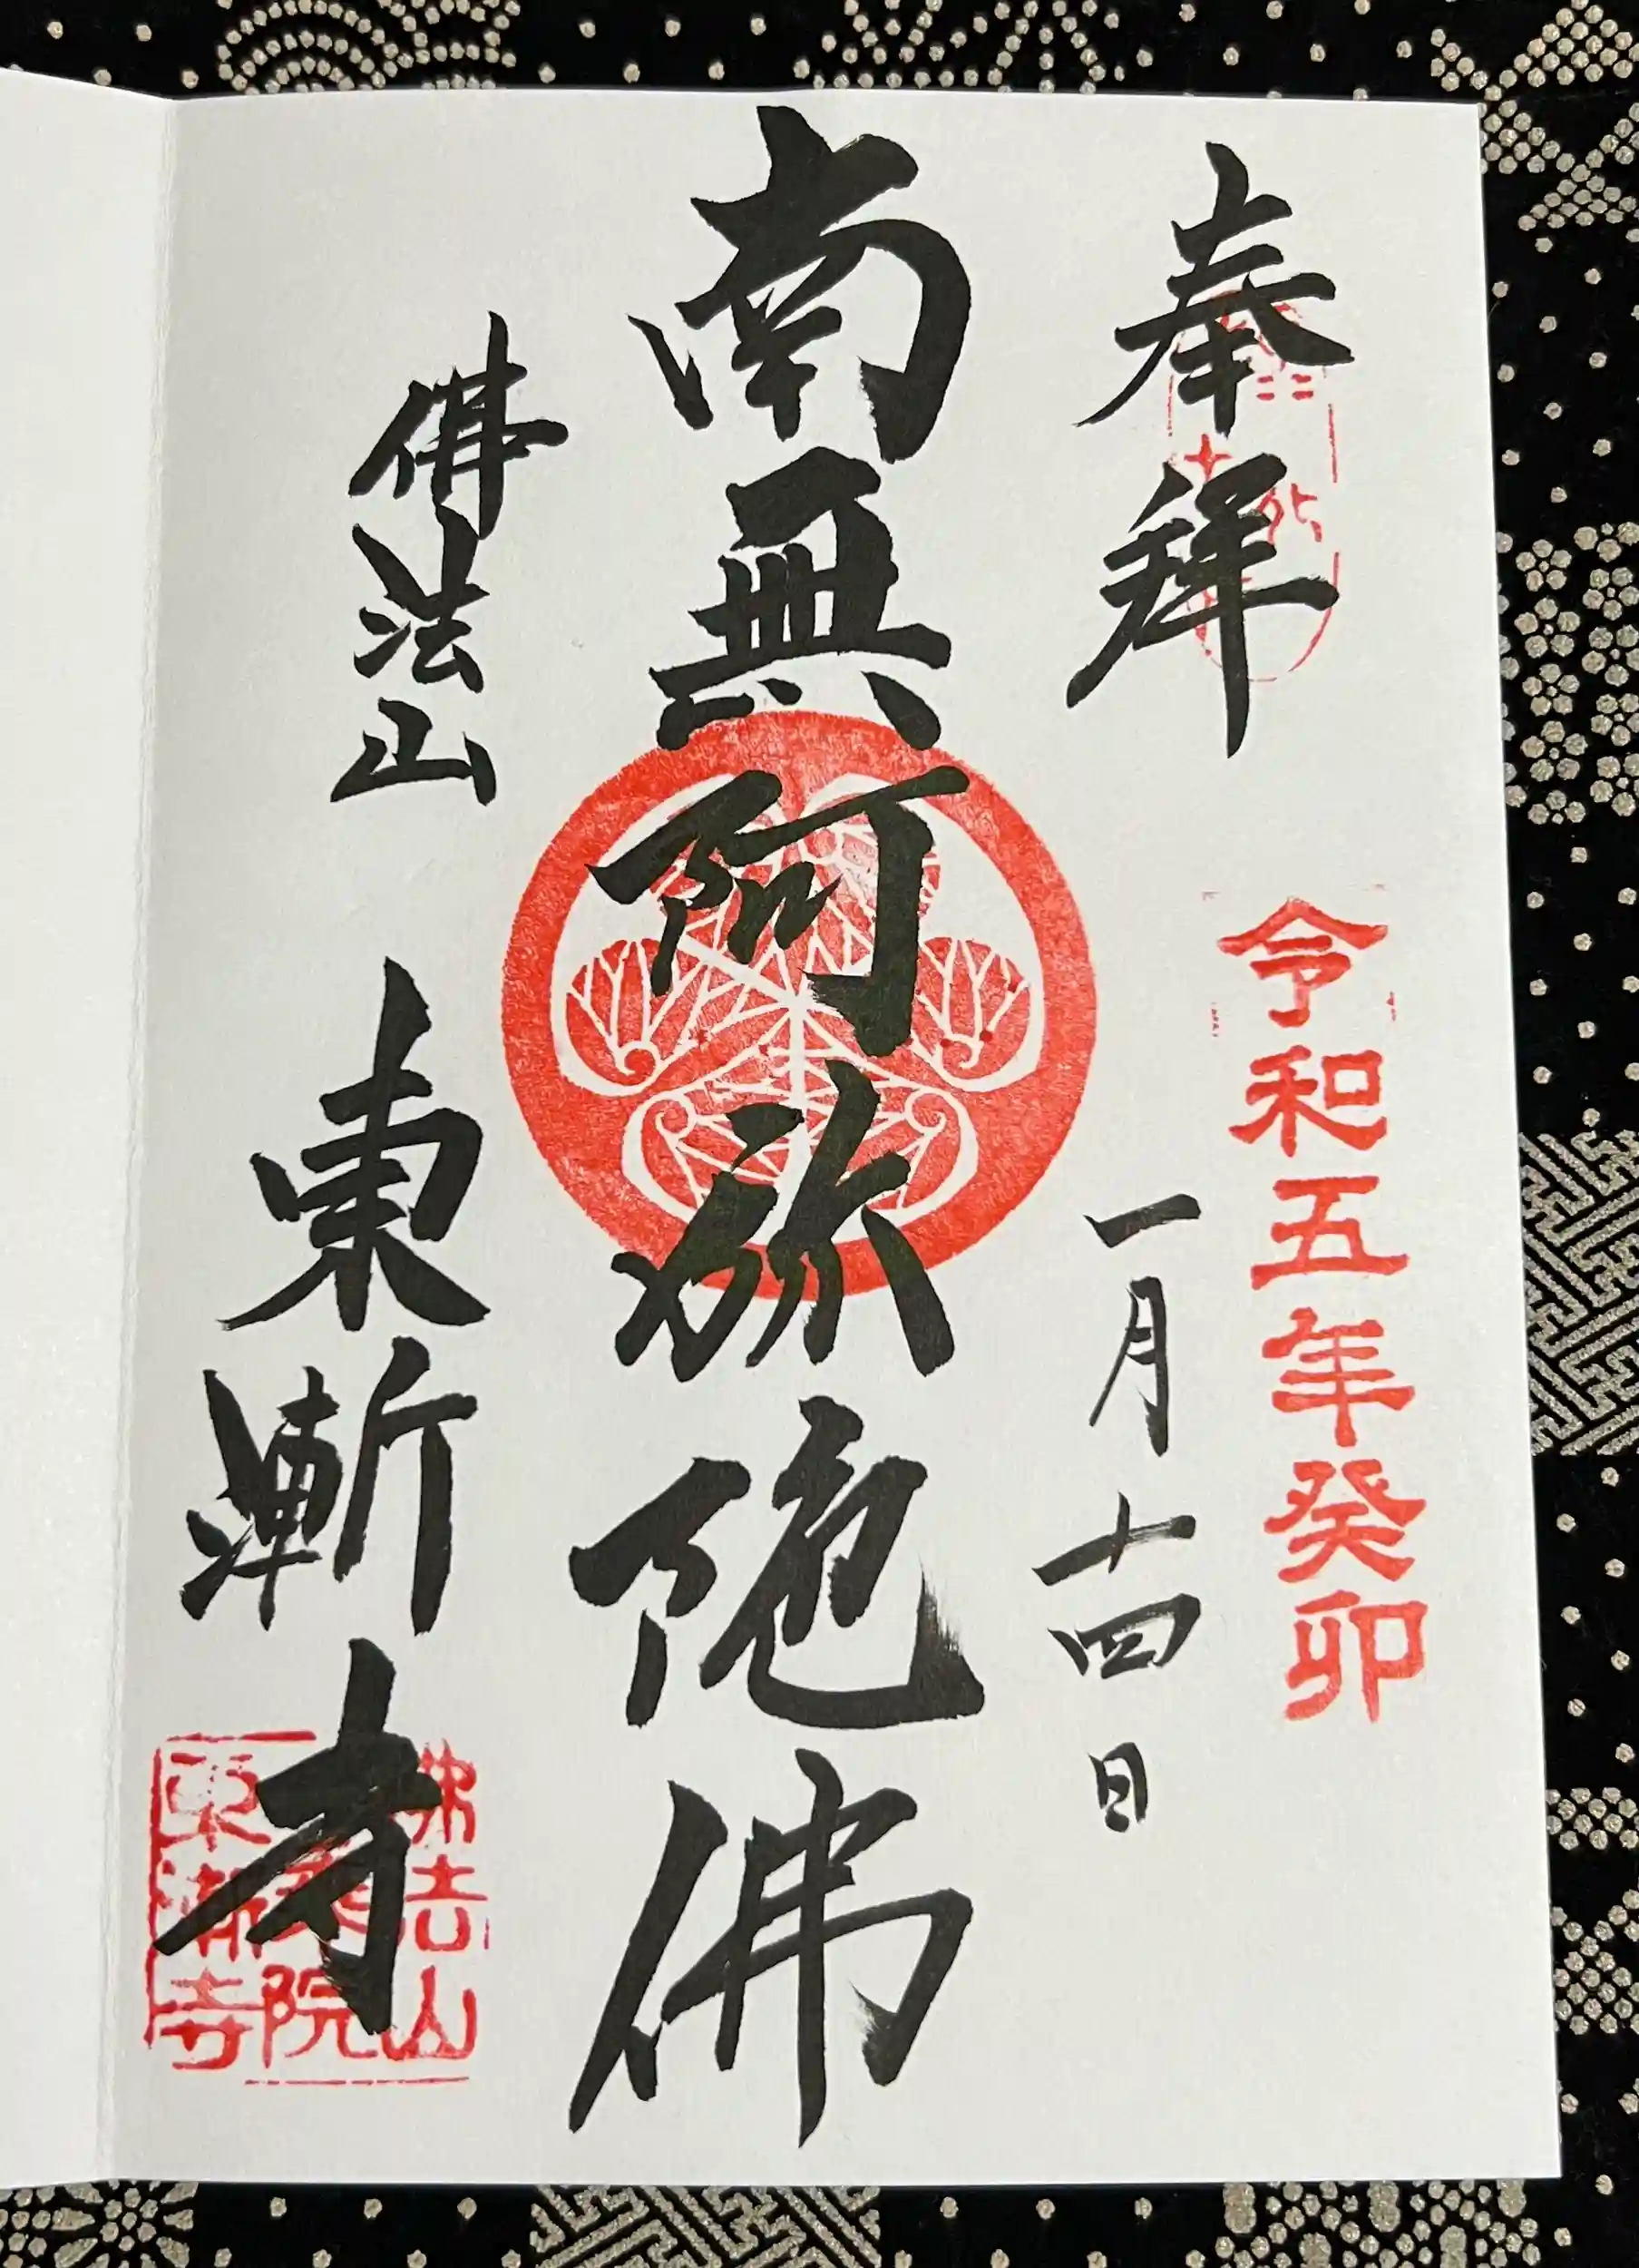 奉拜
令和五年癸卯
一月十四日
南無阿弥陀佛
佛法山
東漸寺
佛法山
院
東漸寺